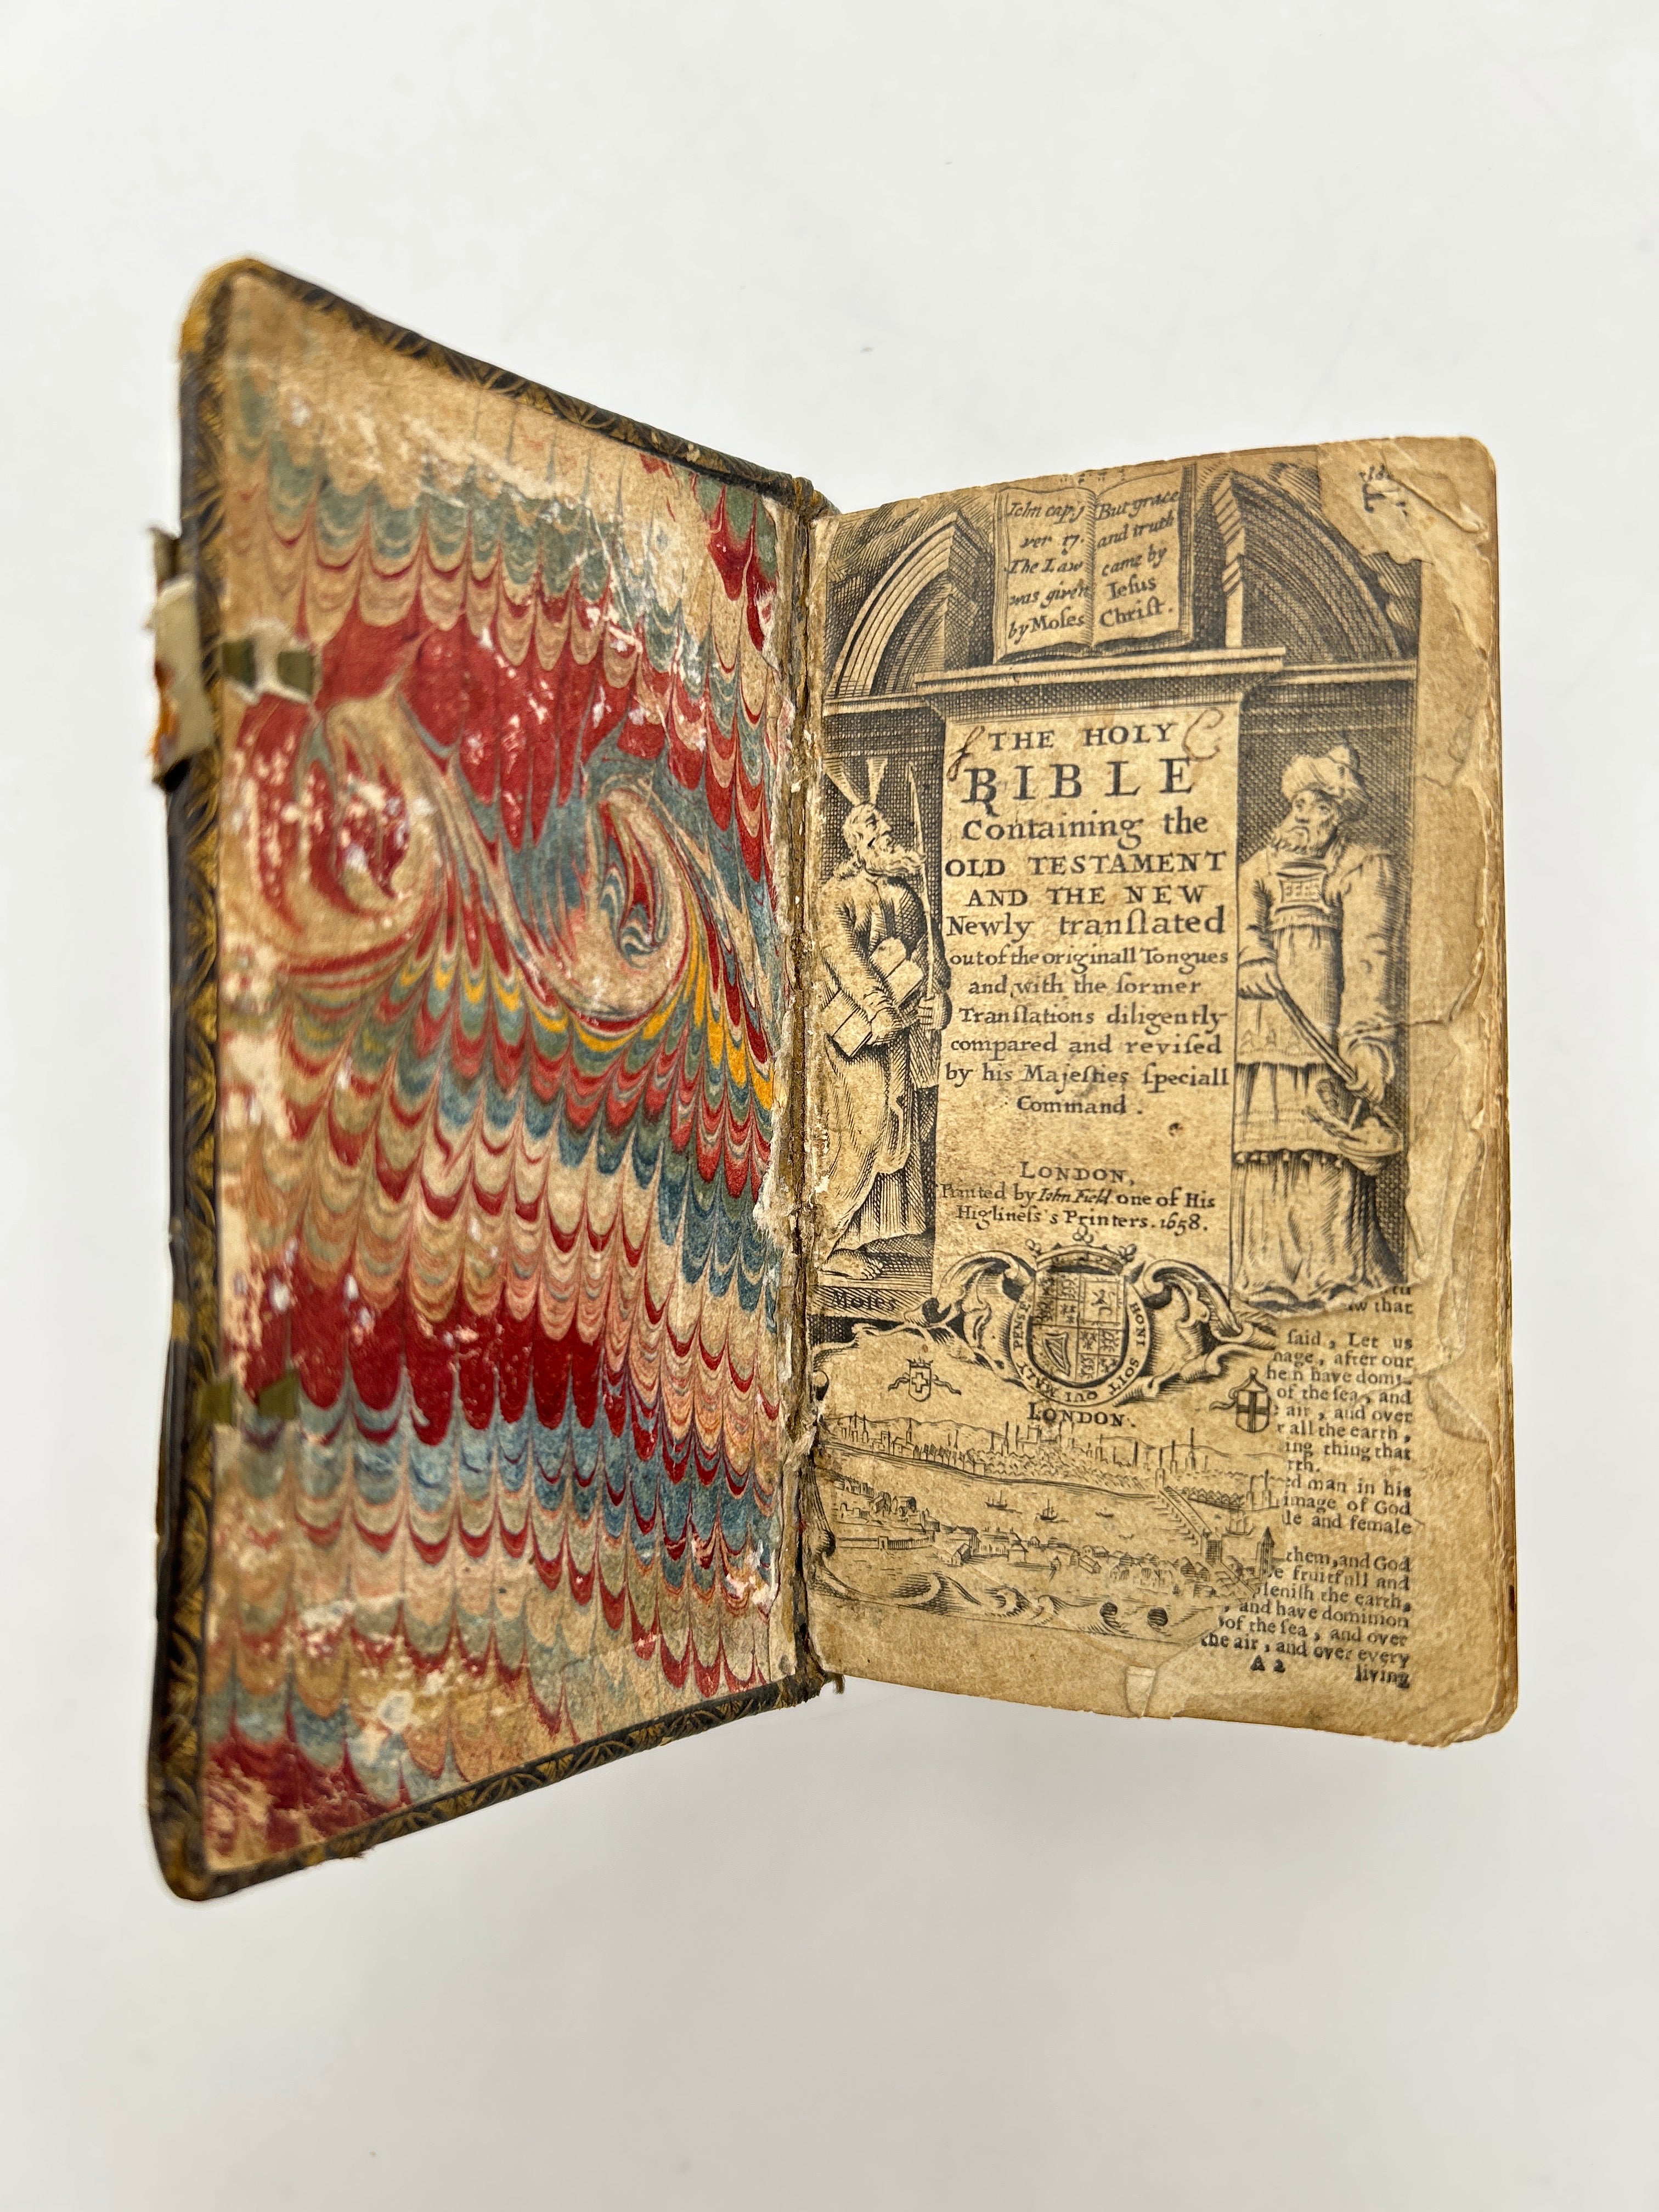 Iohn cap. j
ver 17.
The Law
was given
by Moses
But grace
and truth
came by
Iesus
Christ.
THE HOLY
BIBLE
Containing the
OLD TESTAMENT
AND THE NEW
Newly tranſlated
out of the originall Tongues
and with the former
Tranſlations diligently
compared and reviſed
by his Majeſties ſpeciall
Command.
LONDON,
Printed by Iohn Field one of His
Highneſs's Printers. 1658.
Moſes
HONI SOIT QUI MAL Y PENSE
LONDON.
that
ſaid, Let us
mage, after our
hen have domi-
of the ſea, and
air, and over
all the earth,
ing thing that
rth.
ed man in his
image of God
le and female
them, and God
e fruitfull and
pleniſh the earth,
, and have dominion
of the ſea, and over
the air, and over every
A 2 living